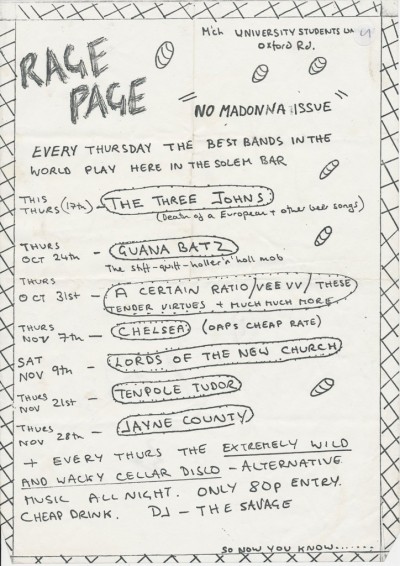 RAGE PAGE
M'ch UNIVERSITY STUDENTS
Oxford Rd.
"NO MADONNA ISSUE"
EVERY THURSDAY THE BEST BANDS IN THE
WORLD PLAY HERE IN THE SOLEM BAR
THIS THURS (17th) - THE THREE JOHNS
(Death of a European + other beer songs)
THURS OCT 24th - GUANA BATZ
The stiff-quiff-holler'n'holl mob
THURS OCT 31st - A CERTAIN RATIO/VEE VV/ THESE
TENDER VIRTUES + MUCH MUCH MORE
THURS NOV 7th - CHELSEA (OAPS CHEAP RATE)
SAT NOV 9th - LORDS OF THE NEW CHURCH
THURS NOV 21st - TENPOLE TUDOR
THURS NOV 28th - JAYNE COUNTY
+ EVERY THURS THE EXTREMELY WILD
AND WACKY CELLAR DISCO - ALTERNATIVE
MUSIC ALL NIGHT. ONLY 80p ENTRY.
CHEAP DRINK. DJ - THE SAVAGE
SO NOW YOU KNOW.......